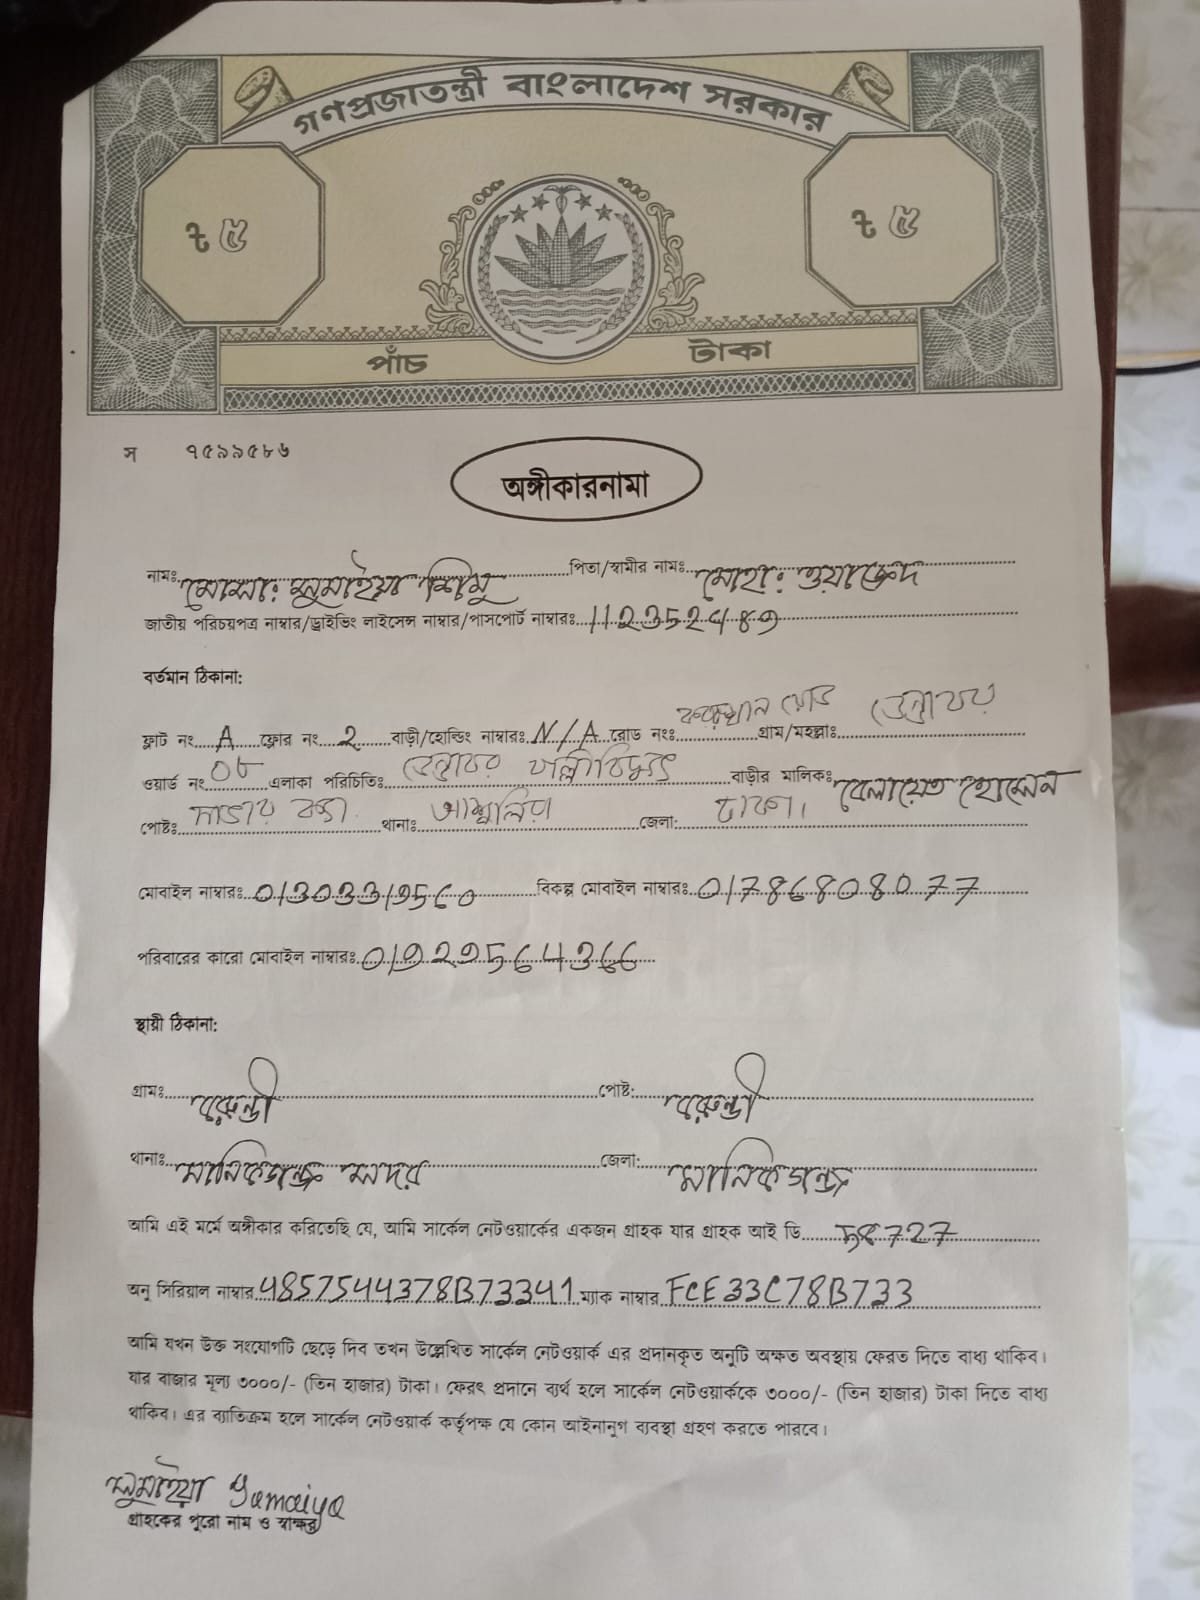 গণপ্রজাতন্ত্রী বাংলাদেশ সরকার
৳ ৫ ৳ ৫
পাঁচ টাকা
স ৭৫৯৯৫৮৬
অঙ্গীকারনামা
নামঃ মোসা: সুমাইয়া শিমু পিতা/স্বামীর নামঃ মোহা: ওয়াজেদ
জাতীয় পরিচয়পত্র নাম্বার/ড্রাইভিং লাইসেন্স নাম্বার/পাসপোর্ট নাম্বারঃ
বর্তমান ঠিকানা:
ফ্লাট নং A ফ্লোর নং 2 বাড়ী/হোল্ডিং নাম্বারঃ N/A রোড নংঃ রোড গ্রাম/মহল্লাঃ
ওয়ার্ড নং ০৮ এলাকা পরিচিতিঃ পল্লীবিদ্যুৎ বাড়ীর মালিকঃ বেলায়েত হোসেন
পোষ্টঃ থানাঃ আশুলিয়া জেলা: ঢাকা।
মোবাইল নাম্বারঃ বিকল্প মোবাইল নাম্বারঃ 01786808077
পরিবারের কারো মোবাইল নাম্বারঃ
স্থায়ী ঠিকানা:
গ্রামঃ বরুন্ডী পোষ্ট: বরুন্ডী
থানাঃ মানিকগঞ্জ সদর জেলা: মানিকগঞ্জ
আমি এই মর্মে অঙ্গীকার করিতেছি যে, আমি সার্কেল নেটওয়ার্কের একজন গ্রাহক যার গ্রাহক আই ডি
অনু সিরিয়াল নাম্বার 4857544378B73341 ম্যাক নাম্বার FCE33C78B733
আমি যখন উক্ত সংযোগটি ছেড়ে দিব তখন উল্লেখিত সার্কেল নেটওয়ার্ক এর প্রদানকৃত অনুটি অক্ষত অবস্থায় ফেরত দিতে বাধ্য থাকিব।
যার বাজার মূল্য ৩০০০/- (তিন হাজার) টাকা। ফেরৎ প্রদানে ব্যর্থ হলে সার্কেল নেটওয়ার্ককে ৩০০০/- (তিন হাজার) টাকা দিতে বাধ্য
থাকিব। এর ব্যতিক্রম হলে সার্কেল নেটওয়ার্ক কর্তৃপক্ষ যে কোন আইনানুগ ব্যবস্থা গ্রহণ করতে পারবে।
সুমাইয়া
গ্রাহকের পুরো নাম ও স্বাক্ষর